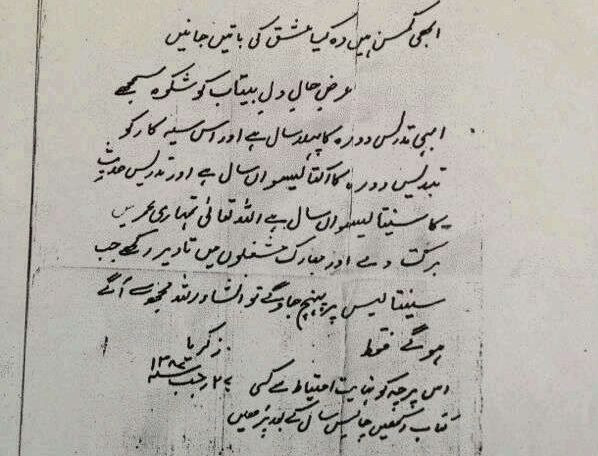 ابھی کمسن ہیں وہ کیا عشق کی باتیں جانیں
عرض حال دل بیتاب کو شکوہ سمجھے
ابھی تدریس دورہ کا پہلا سال ہے اور اس سیہ کار کو
تدریس دورہ کا اکتالیسواں سال ہے اور تدریس حدیث
کا سینتالیسواں سال ہے اللہ تعالیٰ تمہاری عمر میں
برکت دے اور مبارک مشغلوں میں تادیر رکھے جب
سینتالیس پر پہنچ جاوگے تو انشاءاللہ مجھ سے آگے
ہوگے فقط
زکریا
۲۷ رجب ۱۳۸۷
اس پرچہ کو نہایت احتیاط سے کسی
کتاب میں رکھیں چالیس سال کے بعد پڑھیں